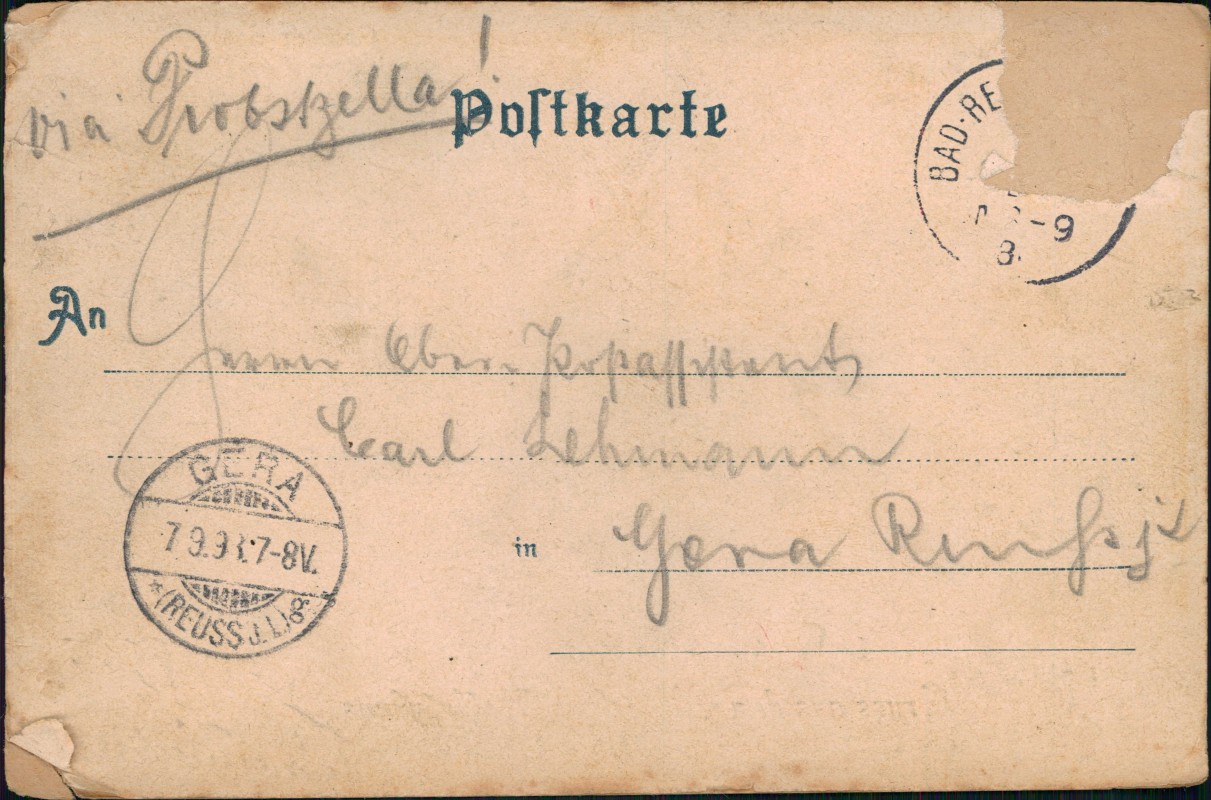 via Probstzella!
Postkarte
BAD-RE
-9
8.
An
Herrn Ober-Postassistent
Carl Lehmann
in Gera Reuß j. L
GERA
7-8V.
*(REUSS J. L.) g.